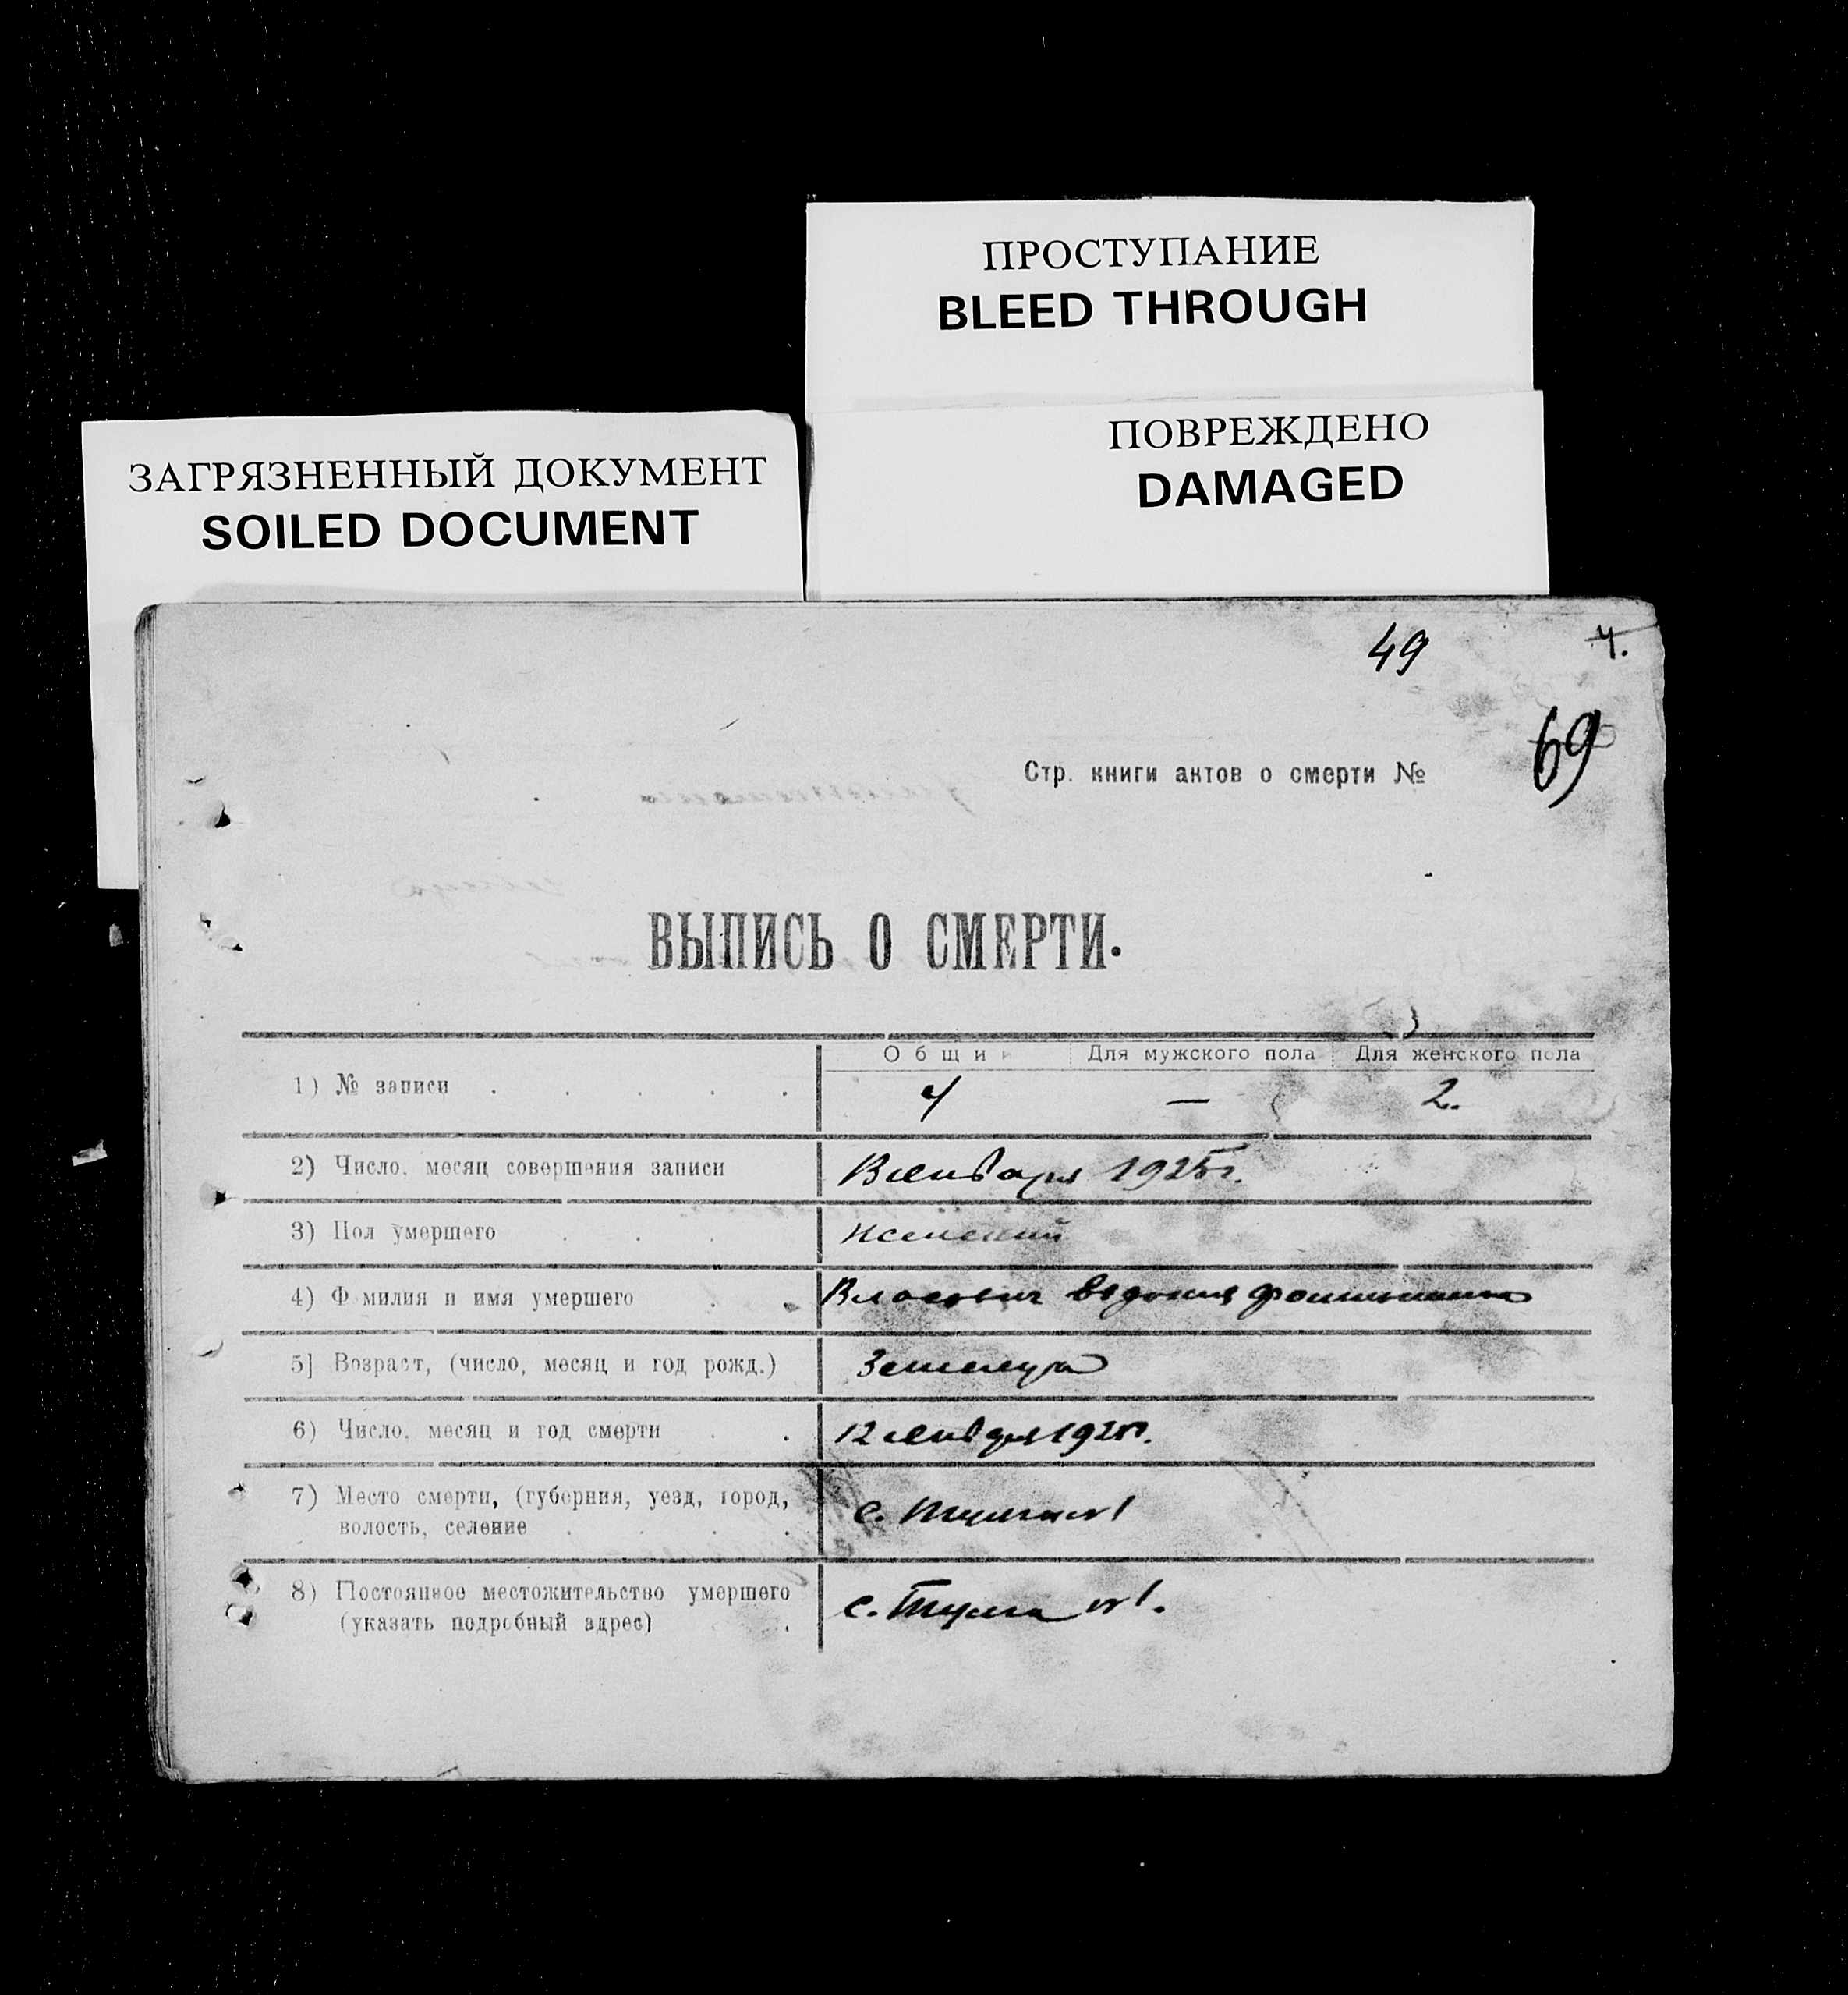 ПРОСТУПАНИЕ
BLEED THROUGH
ПОВРЕЖДЕНО
DAMAGED
ЗАГРЯЗНЕННЫЙ ДОКУМЕНТ
SOILED DOCUMENT
49
4.
69
Стр. книги актов о смерти №
ВЫПИСЬ О СМЕРТИ.
Общий Для мужского пола Для женского пола
1) № записи 4 — 2.
2) Число, месяц совершения записи января 1925г.
3) Пол умершего Женский
4) Фамилия и имя умершего
5) Возраст, (число, месяц и год рожд.)
6) Число, месяц и год смерти 12 января 1925г.
7) Место смерти, (губерния, уезд, город,
волость, селение с.
8) Постоянное местожительство умершего
(указать подробный адрес) с.